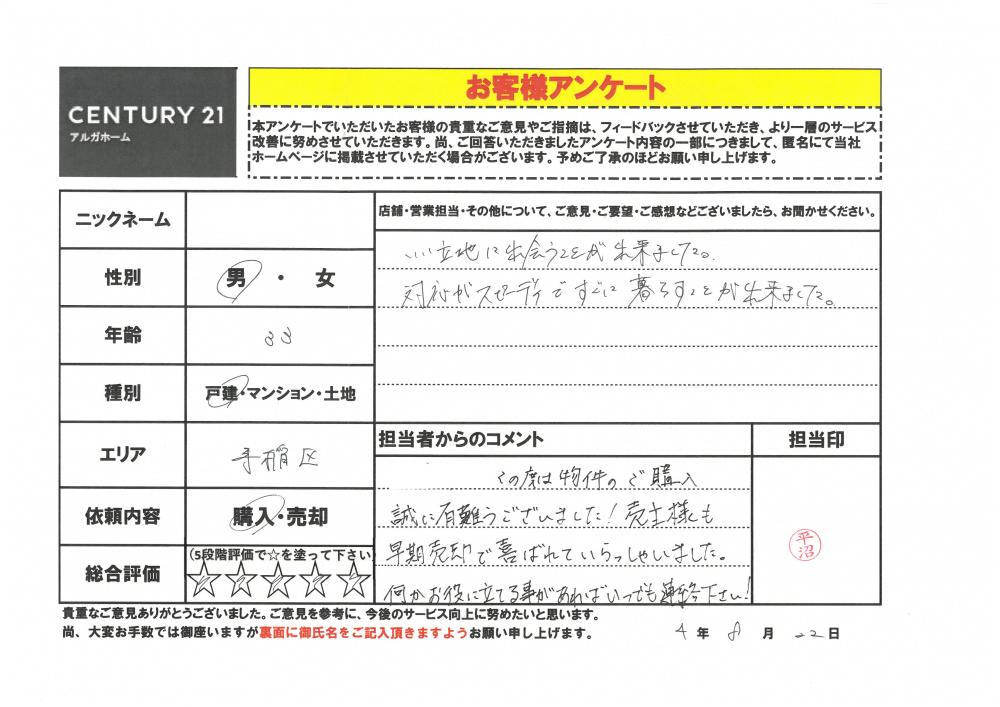 CENTURY 21
アルガホーム
お客様アンケート
本アンケートでいただいたお客様の貴重なご意見やご指摘は、フィードバックさせていただき、より一層のサービス
改善に努めさせていただきます。尚、ご回答いただきましたアンケート内容の一部につきまして、匿名にて当社
ホームページに掲載させていただく場合がございます。予めご了承のほどお願い申し上げます。
ニックネーム
性別 男・女
年齢 33
種別 戸建・マンション・土地
エリア 手稲区
依頼内容 購入・売却
総合評価 (5段階評価で☆を塗って下さい)
☆☆☆☆☆
店舗・営業担当・その他について、ご意見・ご要望・ご感想などございましたら、お聞かせください。
いい立地に出会うことが出来ました。
対応がスピーディですぐに暮らすことが出来ました。
担当者からのコメント
この度は物件のご購入
誠に有難うございました!売主様も
早期売却で喜ばれていらっしゃいました。
何かお役に立てる事があればいつでも連絡下さい!
担当印
平沼
貴重なご意見ありがとうございました。ご意見を参考に、今後のサービス向上に努めたいと思います。
尚、大変お手数では御座いますが裏面に御氏名をご記入頂きますようお願い申し上げます。
4年8月22日